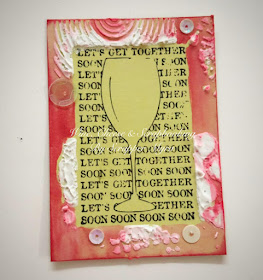 LET'S GET TOGETHER
SOON SOON SOON SOON
LET'S GET TOGETHER
SOON SOON SOON SOON
LET'S GET TOGETHER
SOON SOON SOON SOON
LET'S GET TOGETHER
SOON SOON SOON SOON
LET'S GET TOGETHER
SOON SOON SOON SOON
LET'S GETHER
SOON SOON SOON SOON